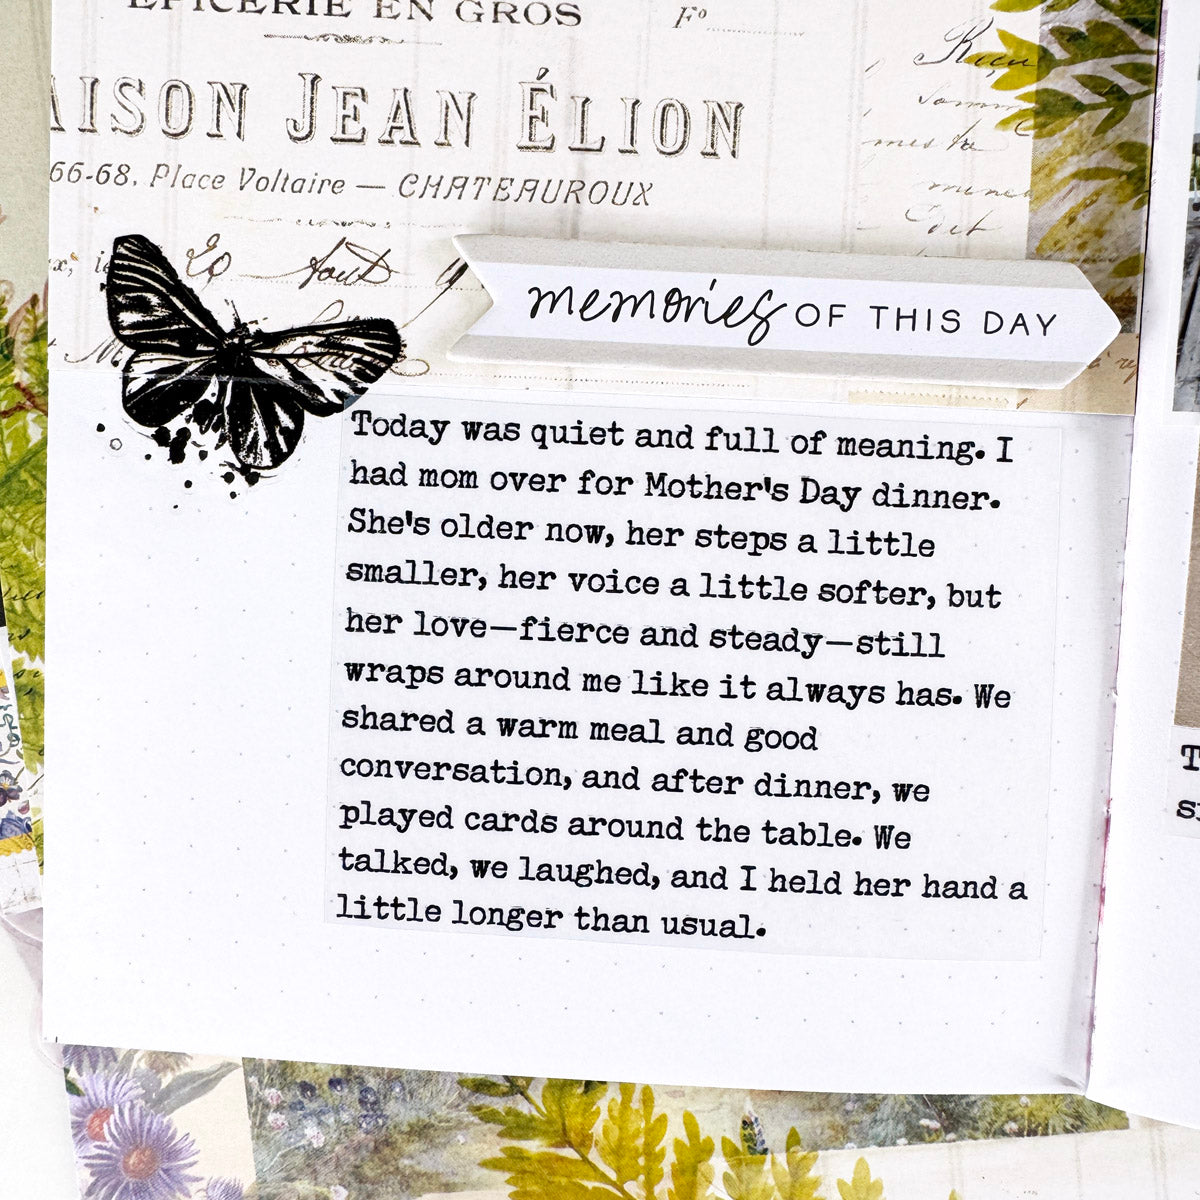 ÉPICERIE EN GROS
Fº
AISON JEAN ÉLION
66-68, Place Voltaire — CHATEAUROUX
20 Août
memories OF THIS DAY
Today was quiet and full of meaning. I
had mom over for Mother's Day dinner.
She's older now, her steps a little
smaller, her voice a little softer, but
her love—fierce and steady—still
wraps around me like it always has. We
shared a warm meal and good
conversation, and after dinner, we
played cards around the table. We
talked, we laughed, and I held her hand a
little longer than usual.